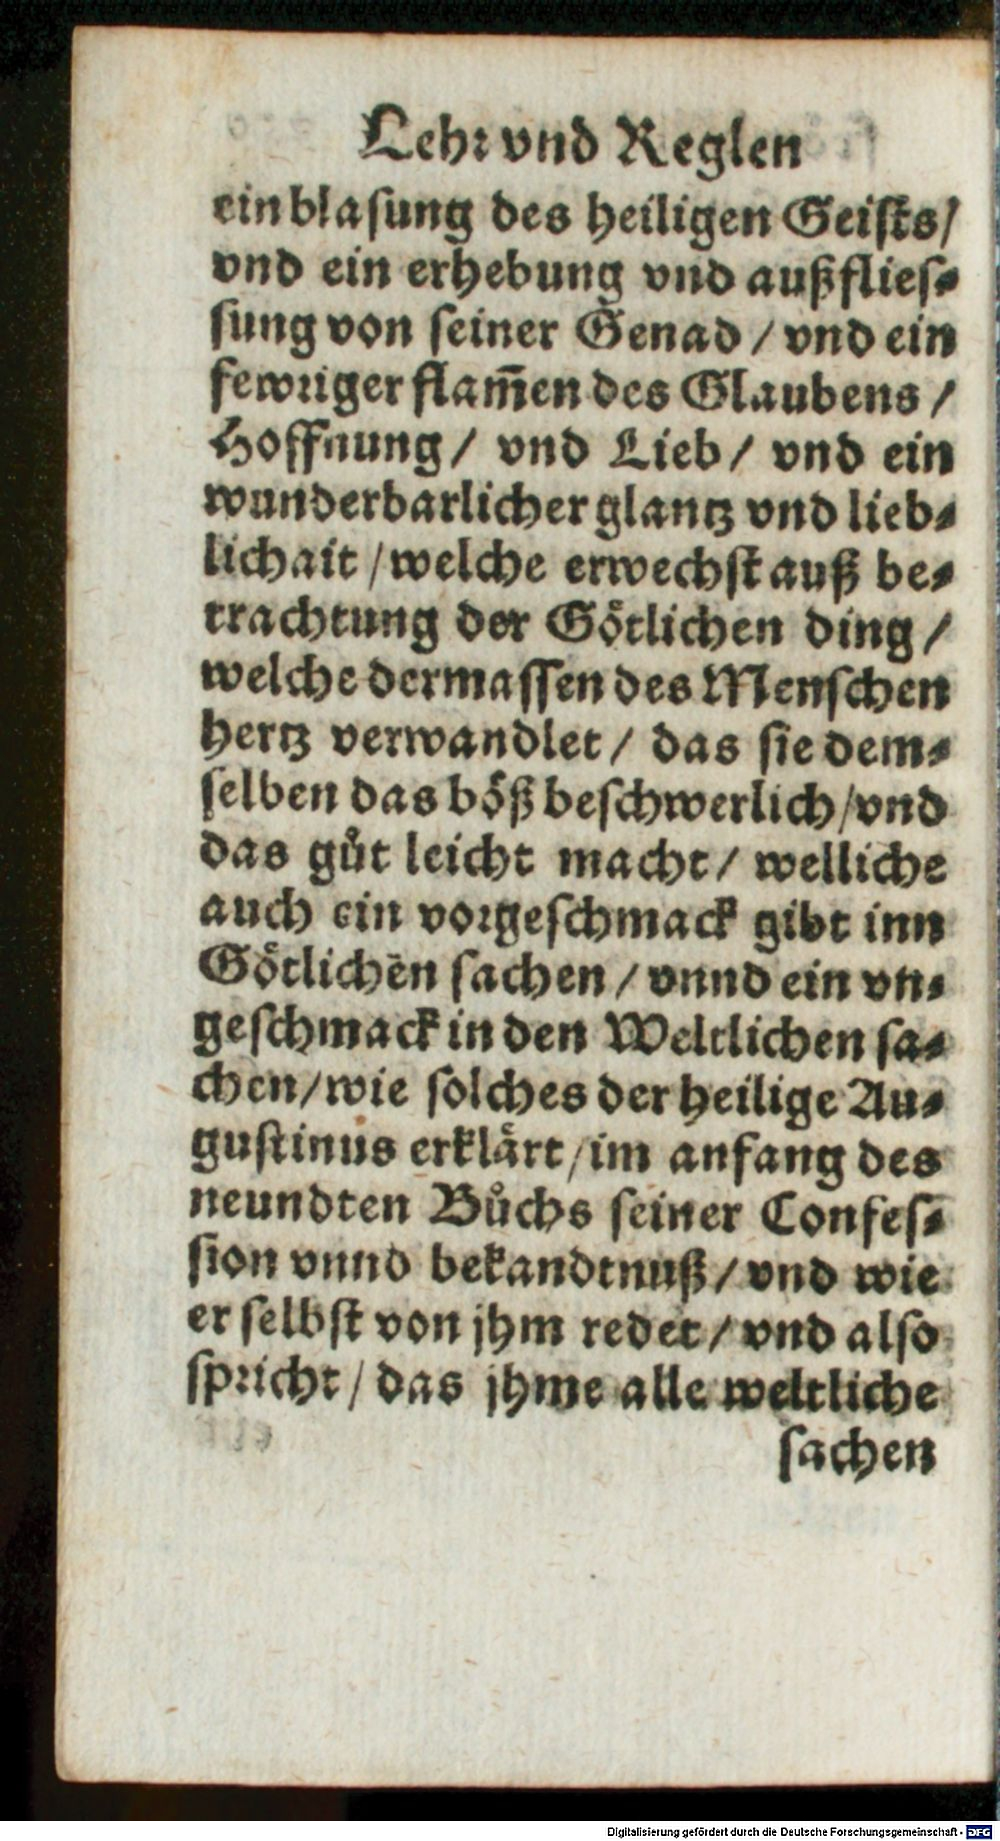 Lehr vnd Reglen
einblasung des heiligen Geists/
vnd ein erhebung vnd außflies⸗
sung von seiner Genad / vnd ein
fewriger flam̄en des Glaubens /
Hoffnung / vnd Lieb / vnd ein
wunderbarlicher glantz vnd lieb⸗
lichait / welche erwechst auß be⸗
trachtung der Götlichen ding /
welche dermassen des Menschen
hertz verwandlet / das sie dem⸗
selben das böß beschwerlich / vnd
das gůt leicht macht / welliche
auch ein vorgeschmack gibt inn
Götlichēn sachen / vnnd ein vn⸗
geschmack in den Weltlichen sa⸗
chen / wie solches der heilige Au⸗
gustinus erklärt / im anfang des
neundten Bůchs seiner Confes⸗
sion vnnd bekandtnuß / vnd wie
er selbst von jhm redet / vnd also
spricht / das jhme alle weltliche
sachen
Digitalisierung gefördert durch die Deutsche Forschungsgemeinschaft - DFG